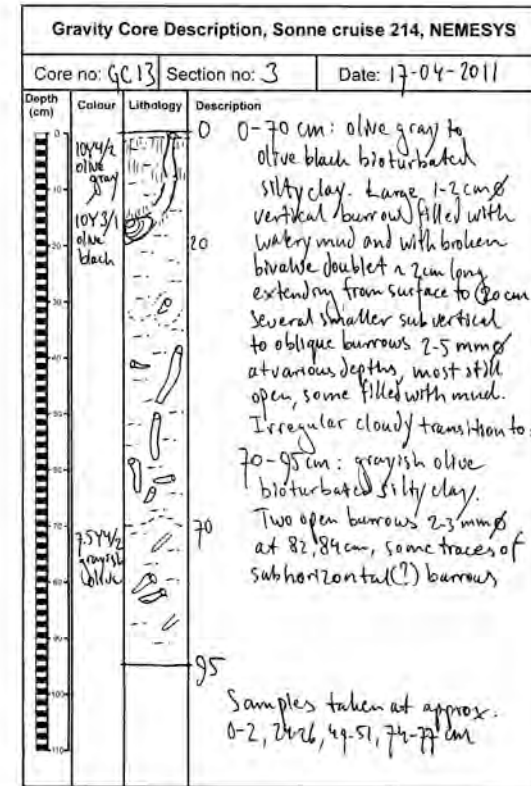 Gravity Core Description, Sonne cruise 214, NEMESYS
Core no: GC13 Section no: 3 Date: 17-04-2011
Depth (cm) Colour Lithology Description
0
10
20
30
40
50
60
70
80
90
100
110
10Y4/2
olive
gray
10Y3/1
olive
black
7.5Y4/2
grayish
olive
0
20
70
95
0-70 cm: olive gray to
olive black bioturbated
silty clay. Large 1-2 cm ø
vertical burrow filled with
watery mud and with broken
bivalve doublet ~ 2cm long
extending from surface to 20 cm
Several smaller subvertical
to oblique burrows 2-5 mm ø
at various depths, most still
open, some filled with mud.
Irregular cloudy transition to:
70-95 cm: grayish olive
bioturbated silty clay.
Two open burrows 2-3 mm ø
at 82, 84 cm, some traces of
subhorizontal(?) burrows
Samples taken at approx.
0-2, 24-26, 49-51, 74-77 cm